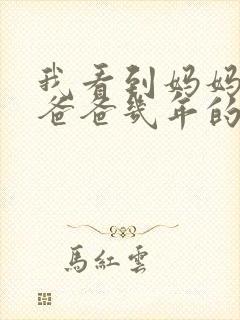 我看到妈妈
爸爸幾年的
馬紅雲